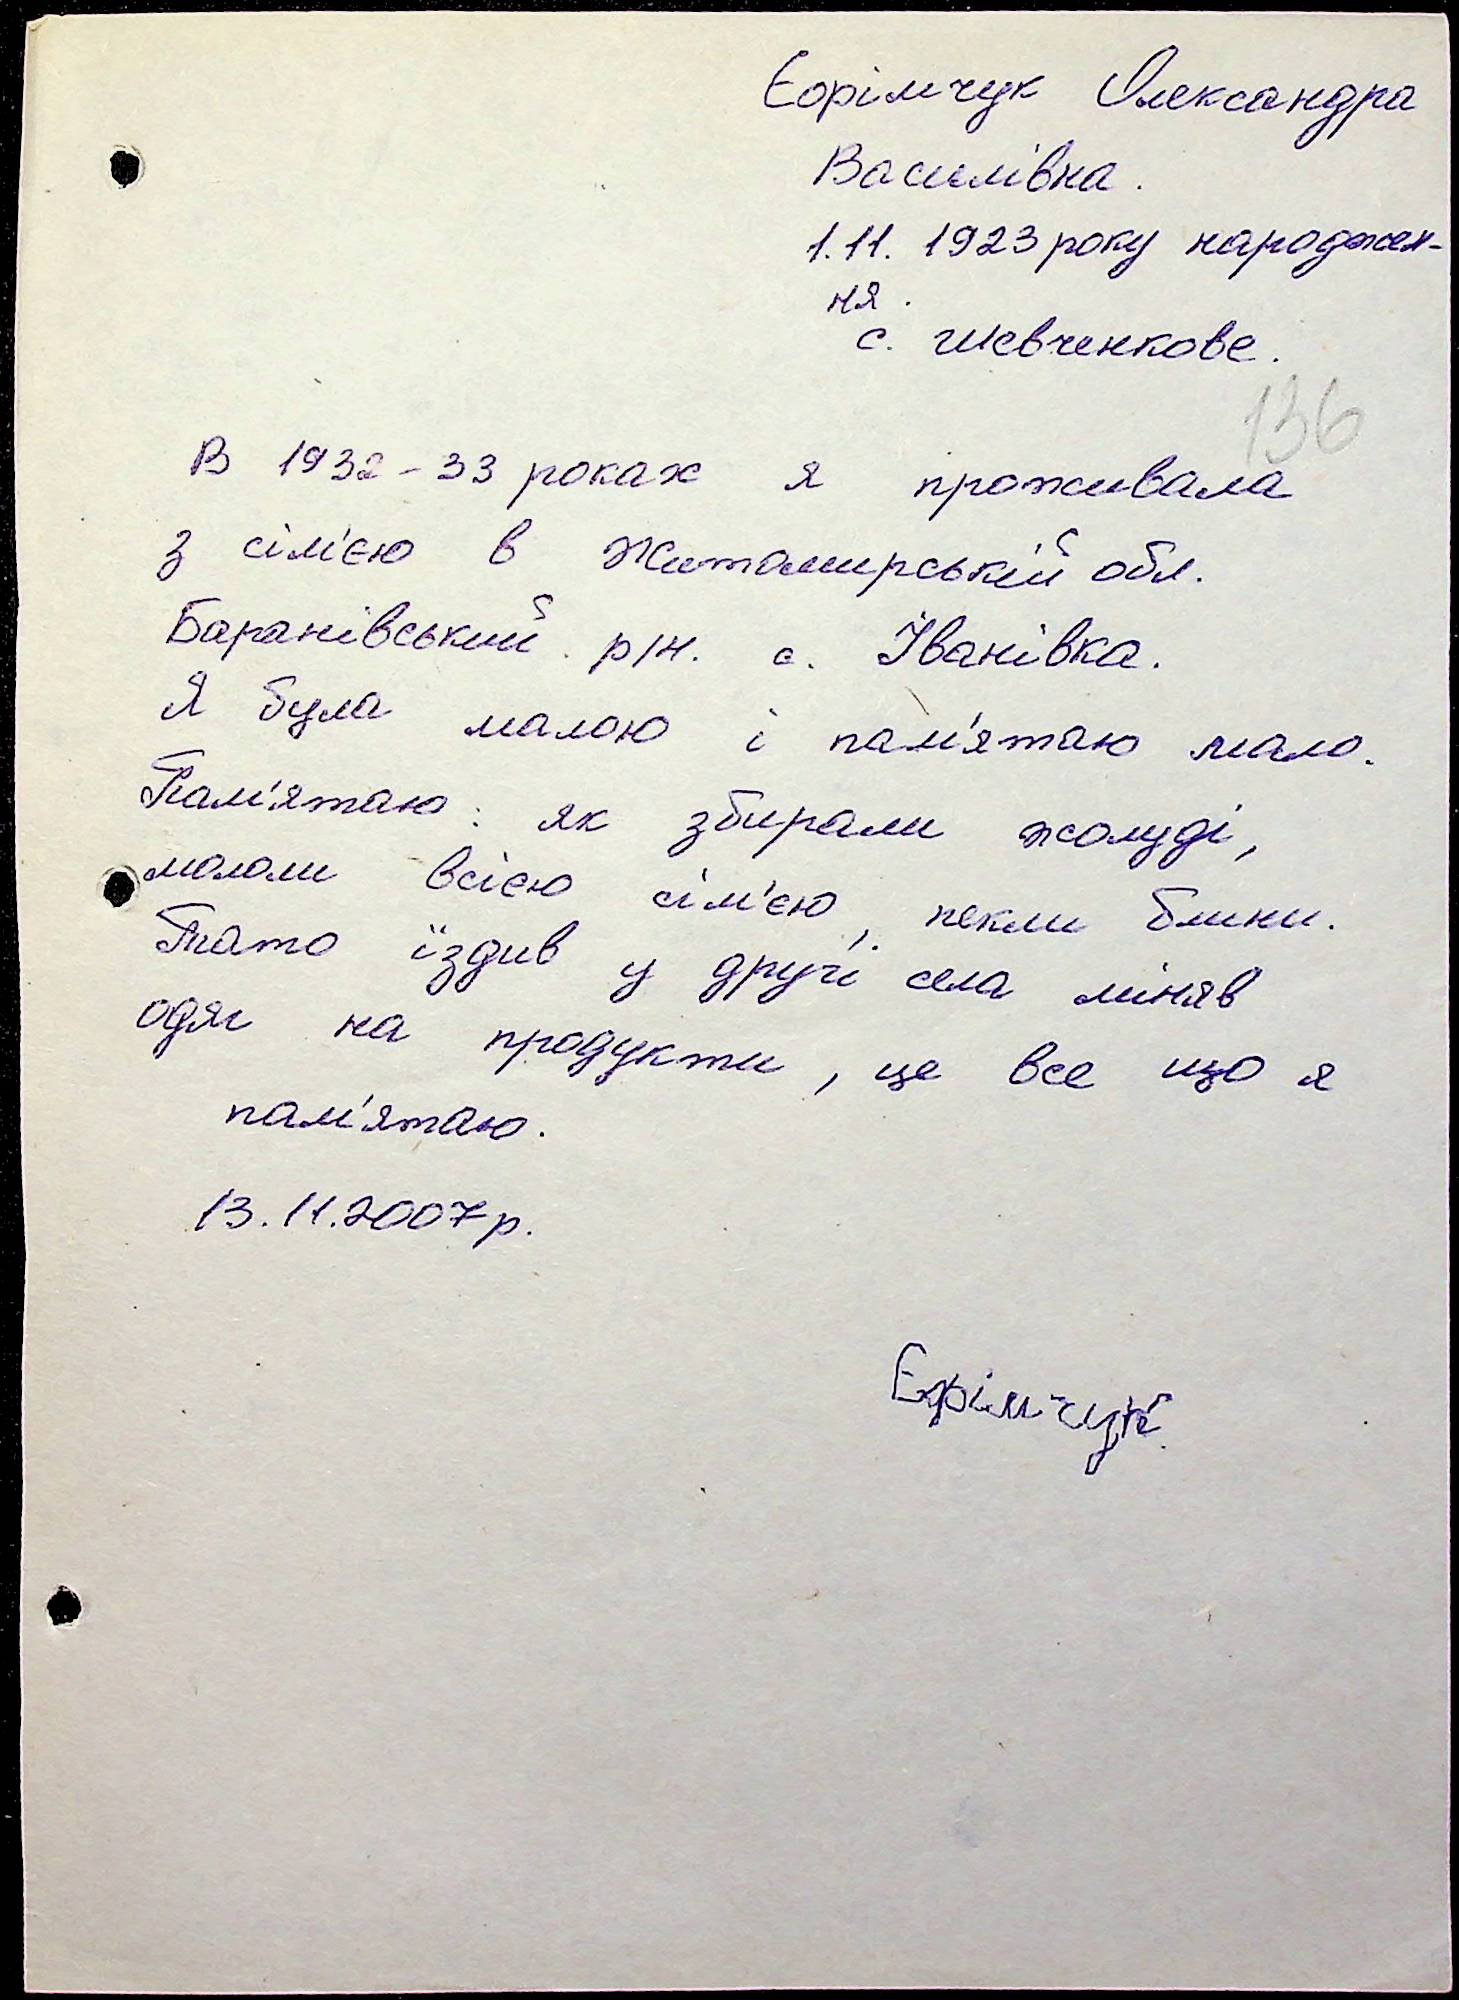 Єфрімчук Олександра
Василівна.
1.11. 1923 року народжен-
ня.
с. Шевченкове.
136
В 1932-33 роках я проживала
з сім'єю в Житомирській обл.
Баранівський р/н. с. Іванівка.
Я була малою і пам'ятаю мало.
Пам'ятаю: як збирали жолуді,
мололи всією сім'єю, пекли блини.
Тато їздив у другі села міняв
одяг на продукти, це все що я
пам'ятаю.
13.11.2007р.
Єфрімчук